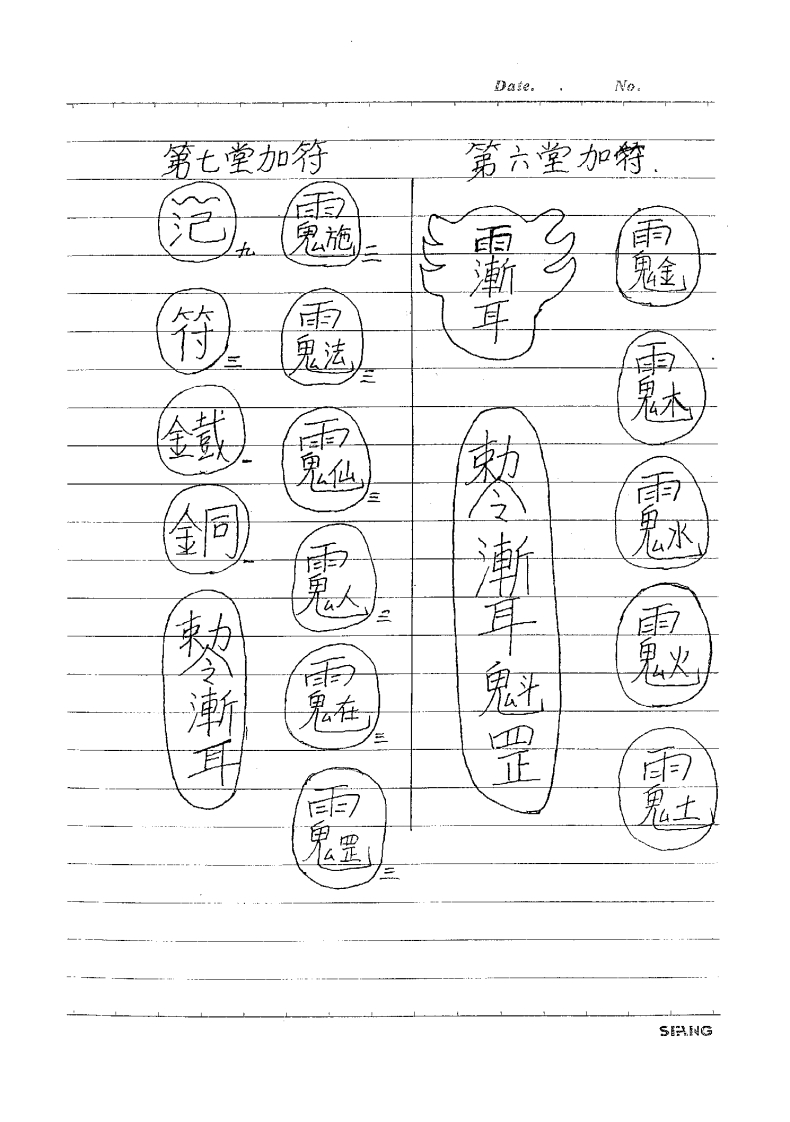 Date. . No.
第六堂加符.
雨鬼金
雨鬼木
雨鬼水
雨鬼火
雨鬼土
雨漸耳
勅令漸耳魁罡
第七堂加符
雨鬼施 二
雨鬼法 三
雨鬼仙 三
雨鬼人 三
雨鬼在 三
雨鬼罡 三
九
符 三
鐵 一
銅 一
勅令漸耳